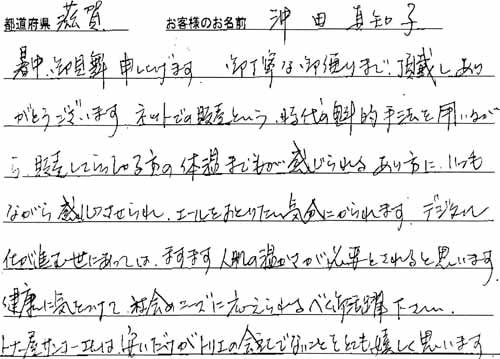 都道府県 滋賀 お客様のお名前 沖田真知子
暑中御見舞申し上げます。御丁寧な御便りまで頂戴しあり
がとうございます。ネットでの販売という、時代の無料的手法を用いなが
ら、販売していらっしゃる方の体温まで私が感じられるあり方に、いつも
ながら感心させられ、エールをおとりたい気分にかられます。デジタル
化が進む世にあっては、ますます人肌の温かさが必要とされると思います。
健康に気をつけて、社会のニーズに応えられるべく御活躍下さい。
トナー屋サンコーエムは安いだけがトリエの会社でないことをとても嬉しく思います。